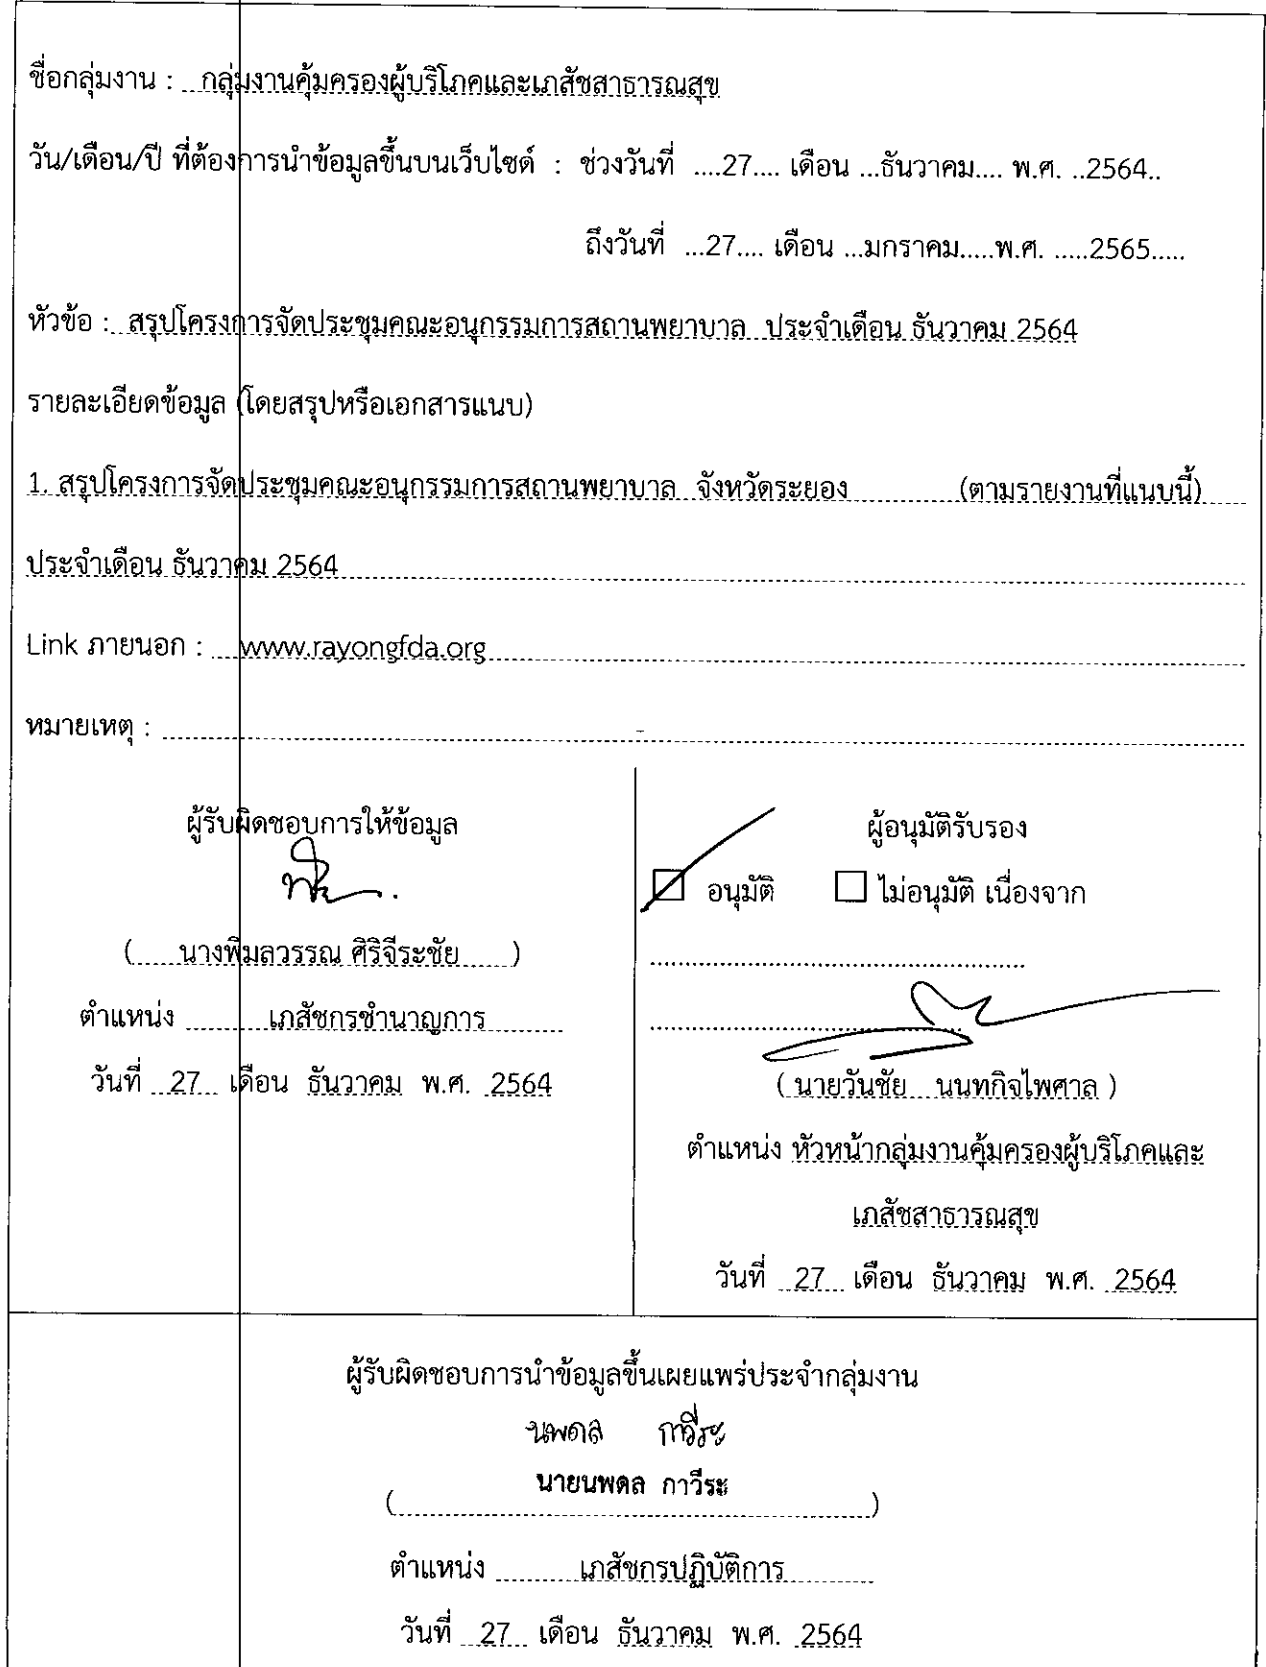 ชื่อกลุ่มงาน : กลุ่มงานคุ้มครองผู้บริโภคและเภสัชสาธารณสุข
วัน/เดือน/ปี ที่ต้องการนำข้อมูลขึ้นบนเว็บไซต์ : ช่วงวันที่ ....27.... เดือน ...ธันวาคม.... พ.ศ. ..2564..
ถึงวันที่ ...27.... เดือน ...มกราคม.....พ.ศ. .....2565.....
หัวข้อ : สรุปโครงการจัดประชุมคณะอนุกรรมการสถานพยาบาล ประจำเดือน ธันวาคม 2564
รายละเอียดข้อมูล (โดยสรุปหรือเอกสารแนบ)
1. สรุปโครงการจัดประชุมคณะอนุกรรมการสถานพยาบาล จังหวัดระยอง (ตามรายงานที่แนบนี้)
ประจำเดือน ธันวาคม 2564
Link ภายนอก : www.rayongfda.org
หมายเหตุ : -
ผู้รับผิดชอบการให้ข้อมูล
( นางพิมลวรรณ ศิริจีระชัย )
ตำแหน่ง เภสัชกรชำนาญการ
วันที่ 27 เดือน ธันวาคม พ.ศ. 2564
ผู้อนุมัติรับรอง
อนุมัติ ไม่อนุมัติ เนื่องจาก
( นายวันชัย นนทกิจไพศาล )
ตำแหน่ง หัวหน้ากลุ่มงานคุ้มครองผู้บริโภคและ
เภสัชสาธารณสุข
วันที่ 27 เดือน ธันวาคม พ.ศ. 2564
ผู้รับผิดชอบการนำข้อมูลขึ้นเผยแพร่ประจำกลุ่มงาน
นพดล กาวีระ
( นายนพดล กาวีระ )
ตำแหน่ง เภสัชกรปฏิบัติการ
วันที่ 27 เดือน ธันวาคม พ.ศ. 2564